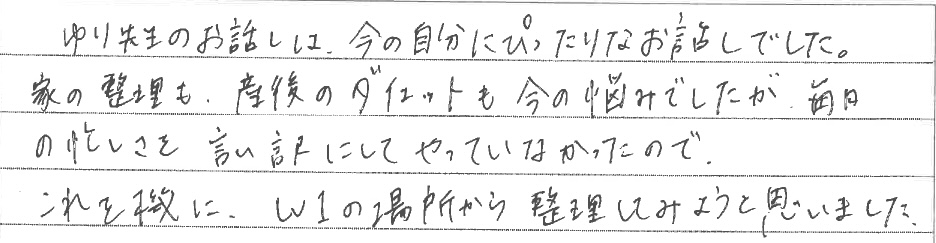 ゆり先生のお話しは、今の自分にぴったりなお話しでした。
家の整理も、産後のダイエットも今の悩みでしたが、毎日
の忙しさを言い訳にしてやっていなかったので、
これを機に、W1の場所から整理してみようと思いました。